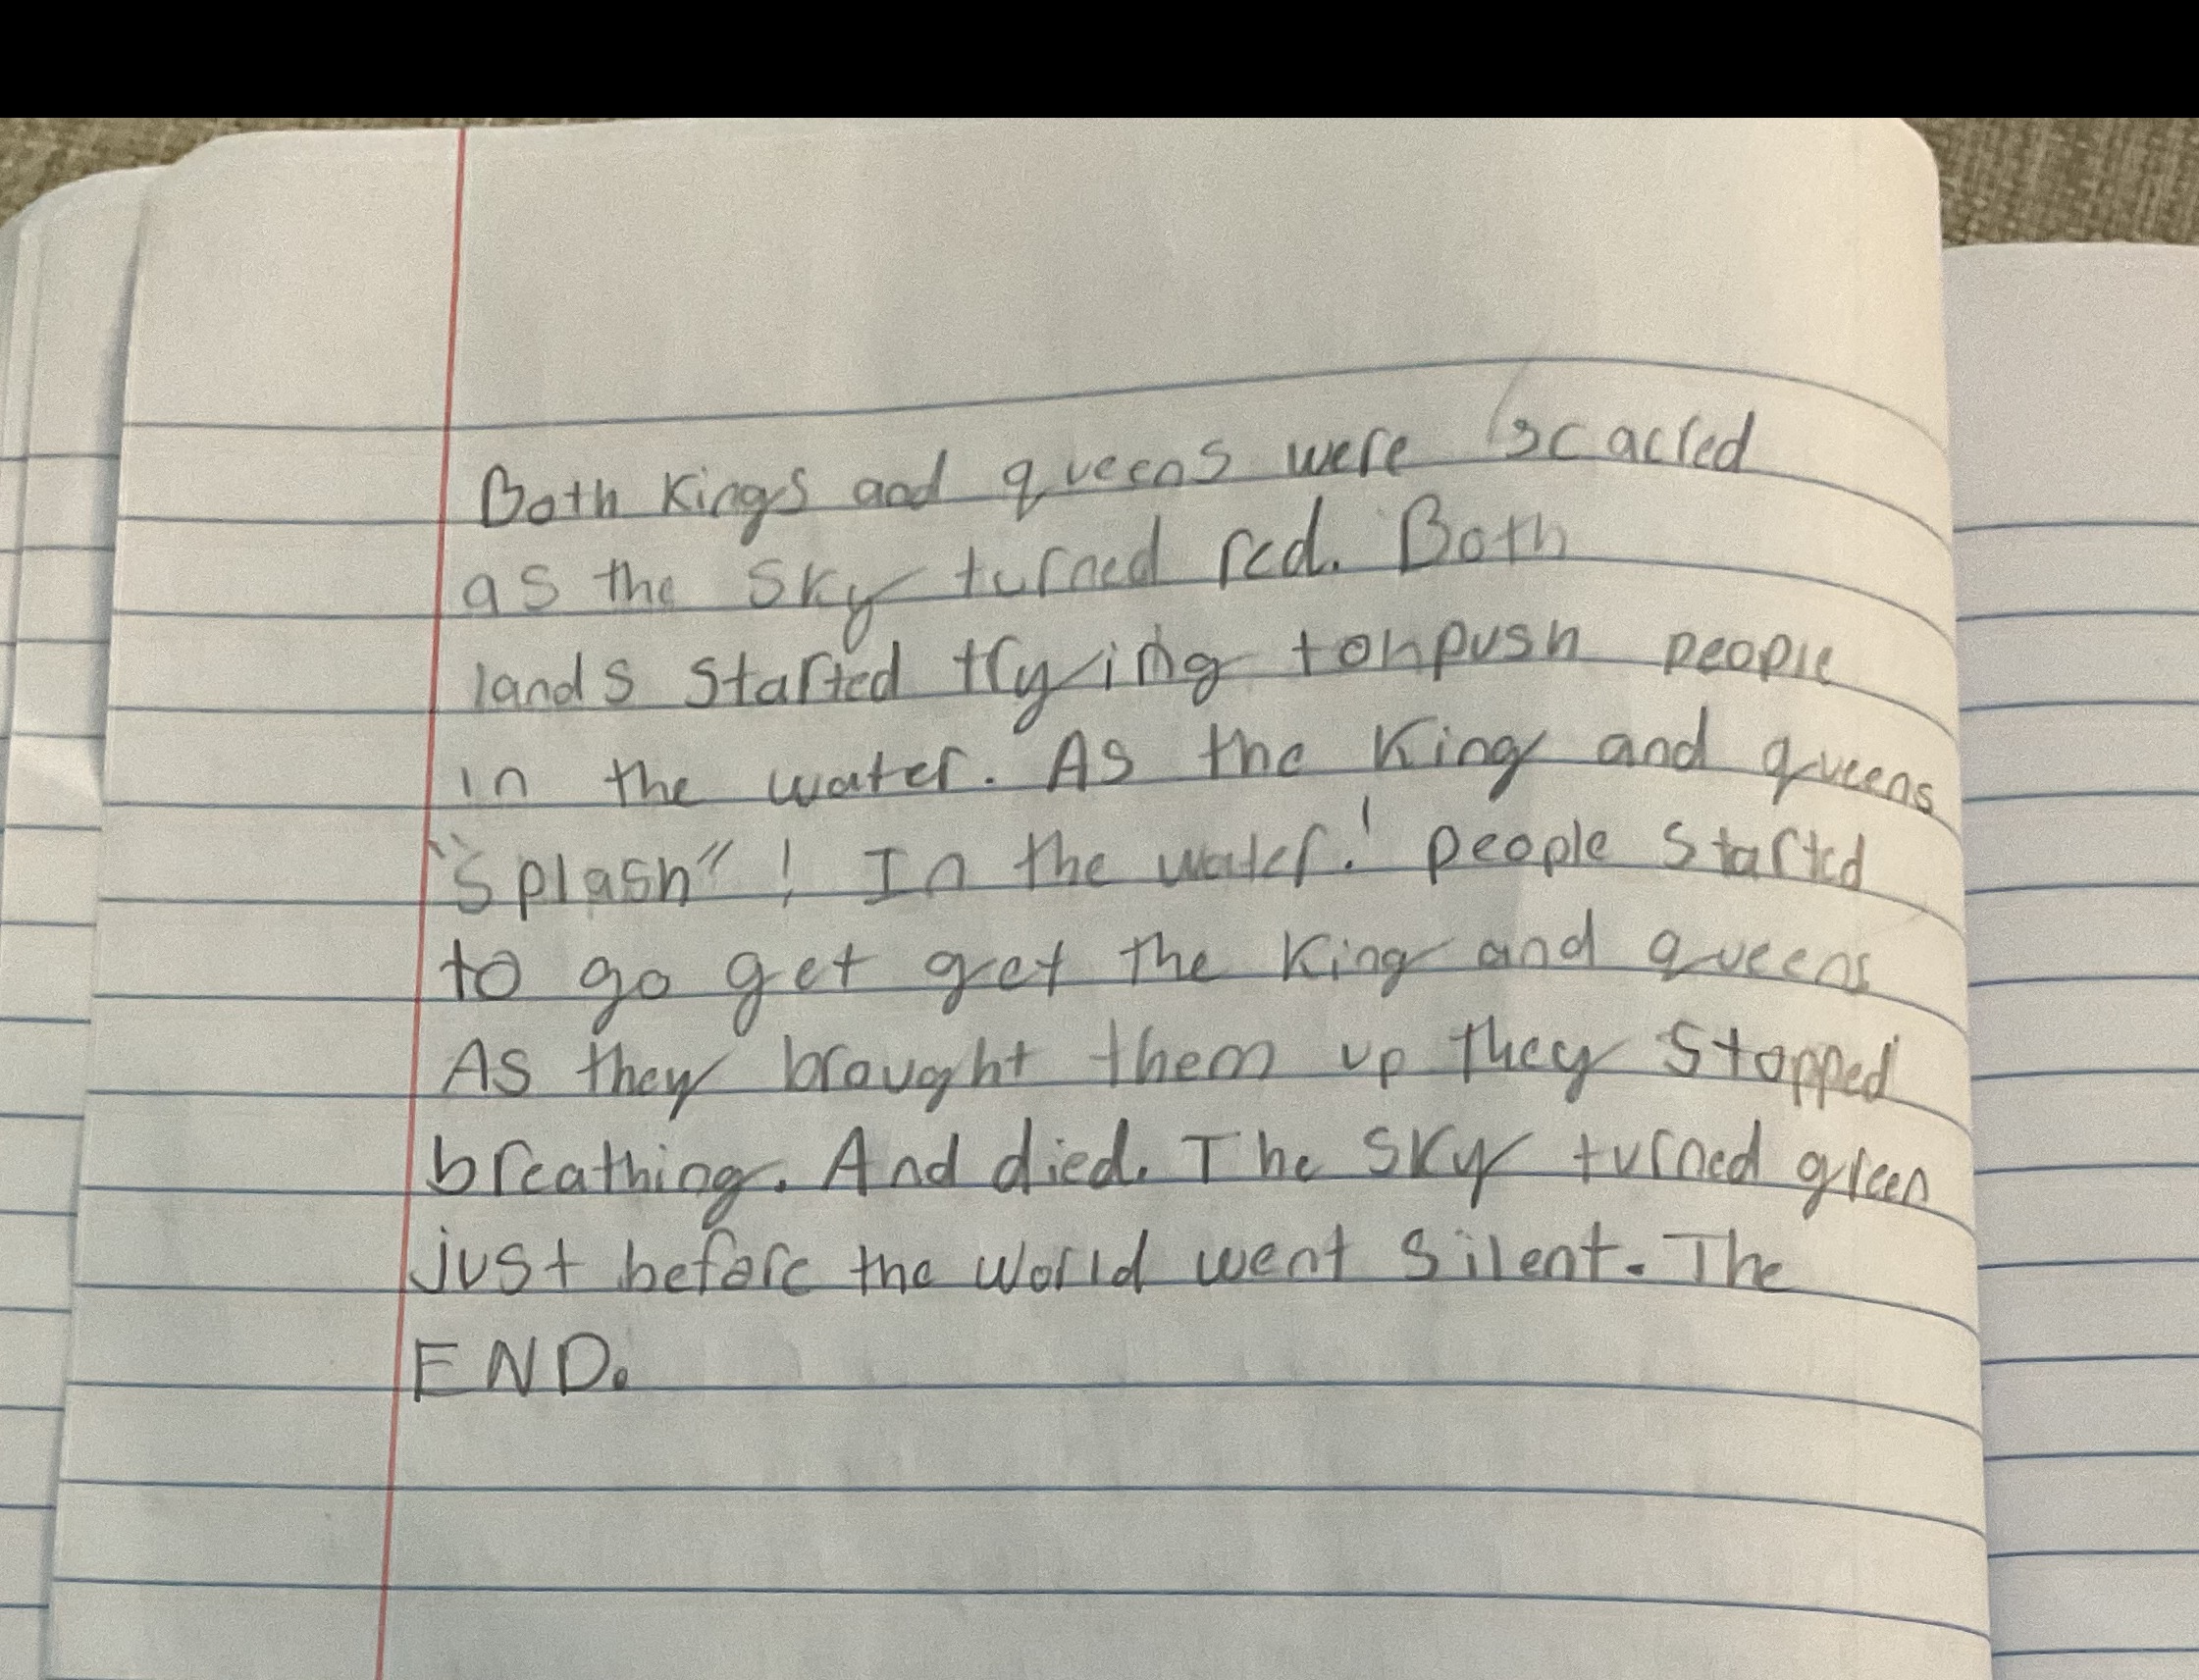 Both Kings and queens were scacred
as the sky turned red. Both
lands started trying tohpush people
in the water. As the King and queens
"splash"! In the water! people started
to go get get the King and queens
As they brought them up they stopped
breathing. And died. The sky turned green
just before the world went silent. The
END.